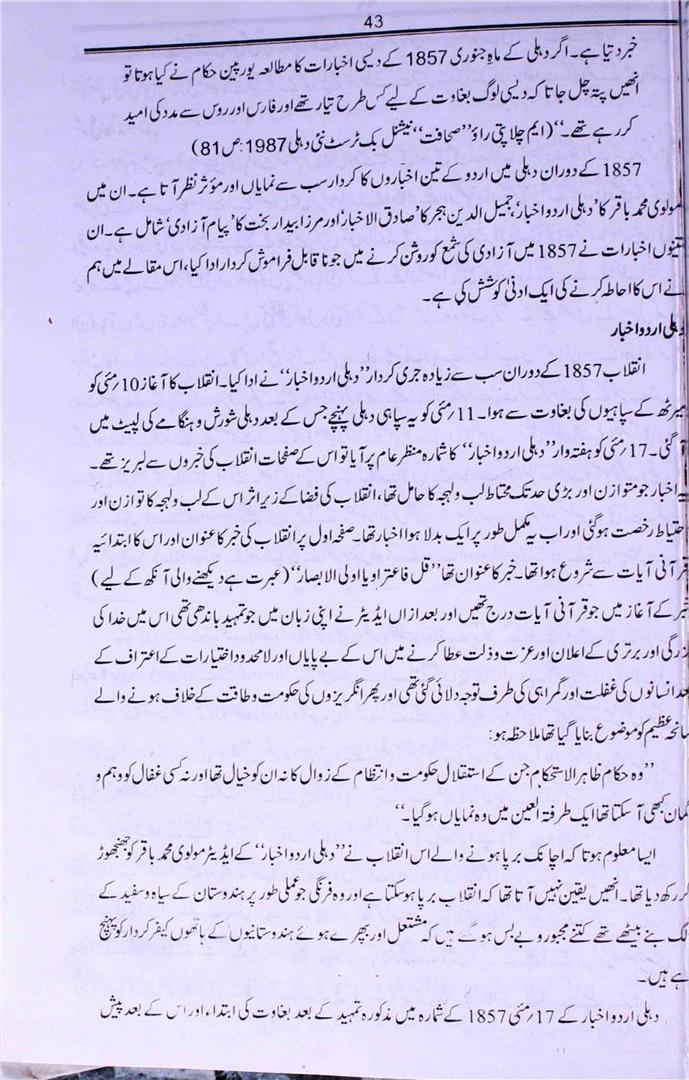 43
خبر دیتا ہے۔ اگر دہلی کے ماہِ جنوری 1857 کے دیسی اخبارات کا مطالعہ یورپین حکام نے کیا ہوتا تو
انھیں پتہ چل جاتا کہ دیسی لوگ بغاوت کے لیے کس طرح تیار تھے اور فارس اور روس سے مدد کی امید
کر رہے تھے۔‘‘ (ایم چلاپتی راؤ ’’صحافت‘‘، نیشنل بک ٹرسٹ نئی دہلی 1987: ص 81)
1857 کے دوران دہلی میں اردو کے تین اخباروں کا کردار سب سے نمایاں اور مؤثر نظر آتا ہے۔ ان میں
مولوی محمد باقر کا ’دہلی اردو اخبار‘، جمیل الدین ہجر کا ’صادق الاخبار‘ اور مرزا بیدار بخت کا ’پیام آزادی‘ شامل ہے۔ ان
تینوں اخبارات نے 1857 میں آزادی کی شمع کو روشن کرنے میں جو ناقابل فراموش کردار ادا کیا، اس مقالے میں ہم
نے اس کا احاطہ کرنے کی ایک ادنیٰ کوشش کی ہے۔
دہلی اردو اخبار
انقلاب 1857 کے دوران سب سے زیادہ جری کردار ’’دہلی اردو اخبار‘‘ نے ادا کیا۔ انقلاب کا آغاز 10؍مئی کو
میرٹھ کے سپاہیوں کی بغاوت سے ہوا۔ 11؍مئی کو یہ سپاہی دہلی پہنچے جس کے بعد دہلی شورش و ہنگامے کی لپیٹ میں
آ گئی۔ 17؍مئی کو ہفتہ وار ’’دہلی اردو اخبار‘‘ کا شمارہ منظر عام پر آیا تو اس کے صفحات انقلاب کی خبروں سے لبریز تھے۔
یہ اخبار جو متوازن اور بڑی حد تک محتاط لب ولہجہ کا حامل تھا، انقلاب کی فضا کے زیر اثر اس کے لب ولہجہ کا توازن اور
احتیاط رخصت ہو گئی اور اب یہ مکمل طور پر ایک بدلا ہوا اخبار تھا۔ صفحہ اول پر انقلاب کی خبر کا عنوان اور اس کا ابتدائیہ
قرآنی آیات سے شروع ہوا تھا۔ خبر کا عنوان تھا ’’قل فاعتبرو یا اولی الابصار‘‘ (عبرت ہے دیکھنے والی آنکھ کے لیے)
خبر کے آغاز میں جو قرآنی آیات درج تھیں اور بعد ازاں ایڈیٹر نے اپنی زبان میں جو تمہید باندھی تھی اس میں خدا کی
بزرگی اور برتری کے اعلان اور عزت و ذلت عطا کرنے میں اس کے بے پایاں اور لامحدود اختیارات کے اعتراف کے
بعد انسانوں کی غفلت اور گمراہی کی طرف توجہ دلائی گئی تھی اور پھر انگریزوں کی حکومت و طاقت کے خلاف ہونے والے
سانحہ عظیم کو موضوع بنایا گیا تھا ملاحظہ ہو:
’’وہ حکام ظاہر الاستحکام جن کے استقلال حکومت و انتظام کے زوال کا نہ ان کو خیال تھا اور نہ کسی غفال کو وہم و
گمان کبھی آ سکتا تھا ایک طرفتہ العین میں وہ نمایاں ہو گیا۔‘‘
ایسا معلوم ہوتا کہ اچانک برپا ہونے والے اس انقلاب نے ’’دہلی اردو اخبار‘‘ کے ایڈیٹر مولوی محمد باقر کو جھنجھوڑ
کر رکھ دیا تھا۔ انھیں یقین نہیں آتا تھا کہ انقلاب برپا ہو سکتا ہے اور وہ فرنگی جو عملی طور پر ہندوستان کے سیاہ و سفید کے
مالک بنے بیٹھے تھے کتنے مجبور و بے بس ہو گئے ہیں کہ مشتعل اور بپھرے ہوئے ہندوستانیوں کے ہاتھوں کیفر کردار کو پہنچ
رہے ہیں۔
دہلی اردو اخبار کے 17؍مئی 1857 کے شمارہ میں مذکورہ تمہید کے بعد بغاوت کی ابتداء اور اس کے بعد پیش